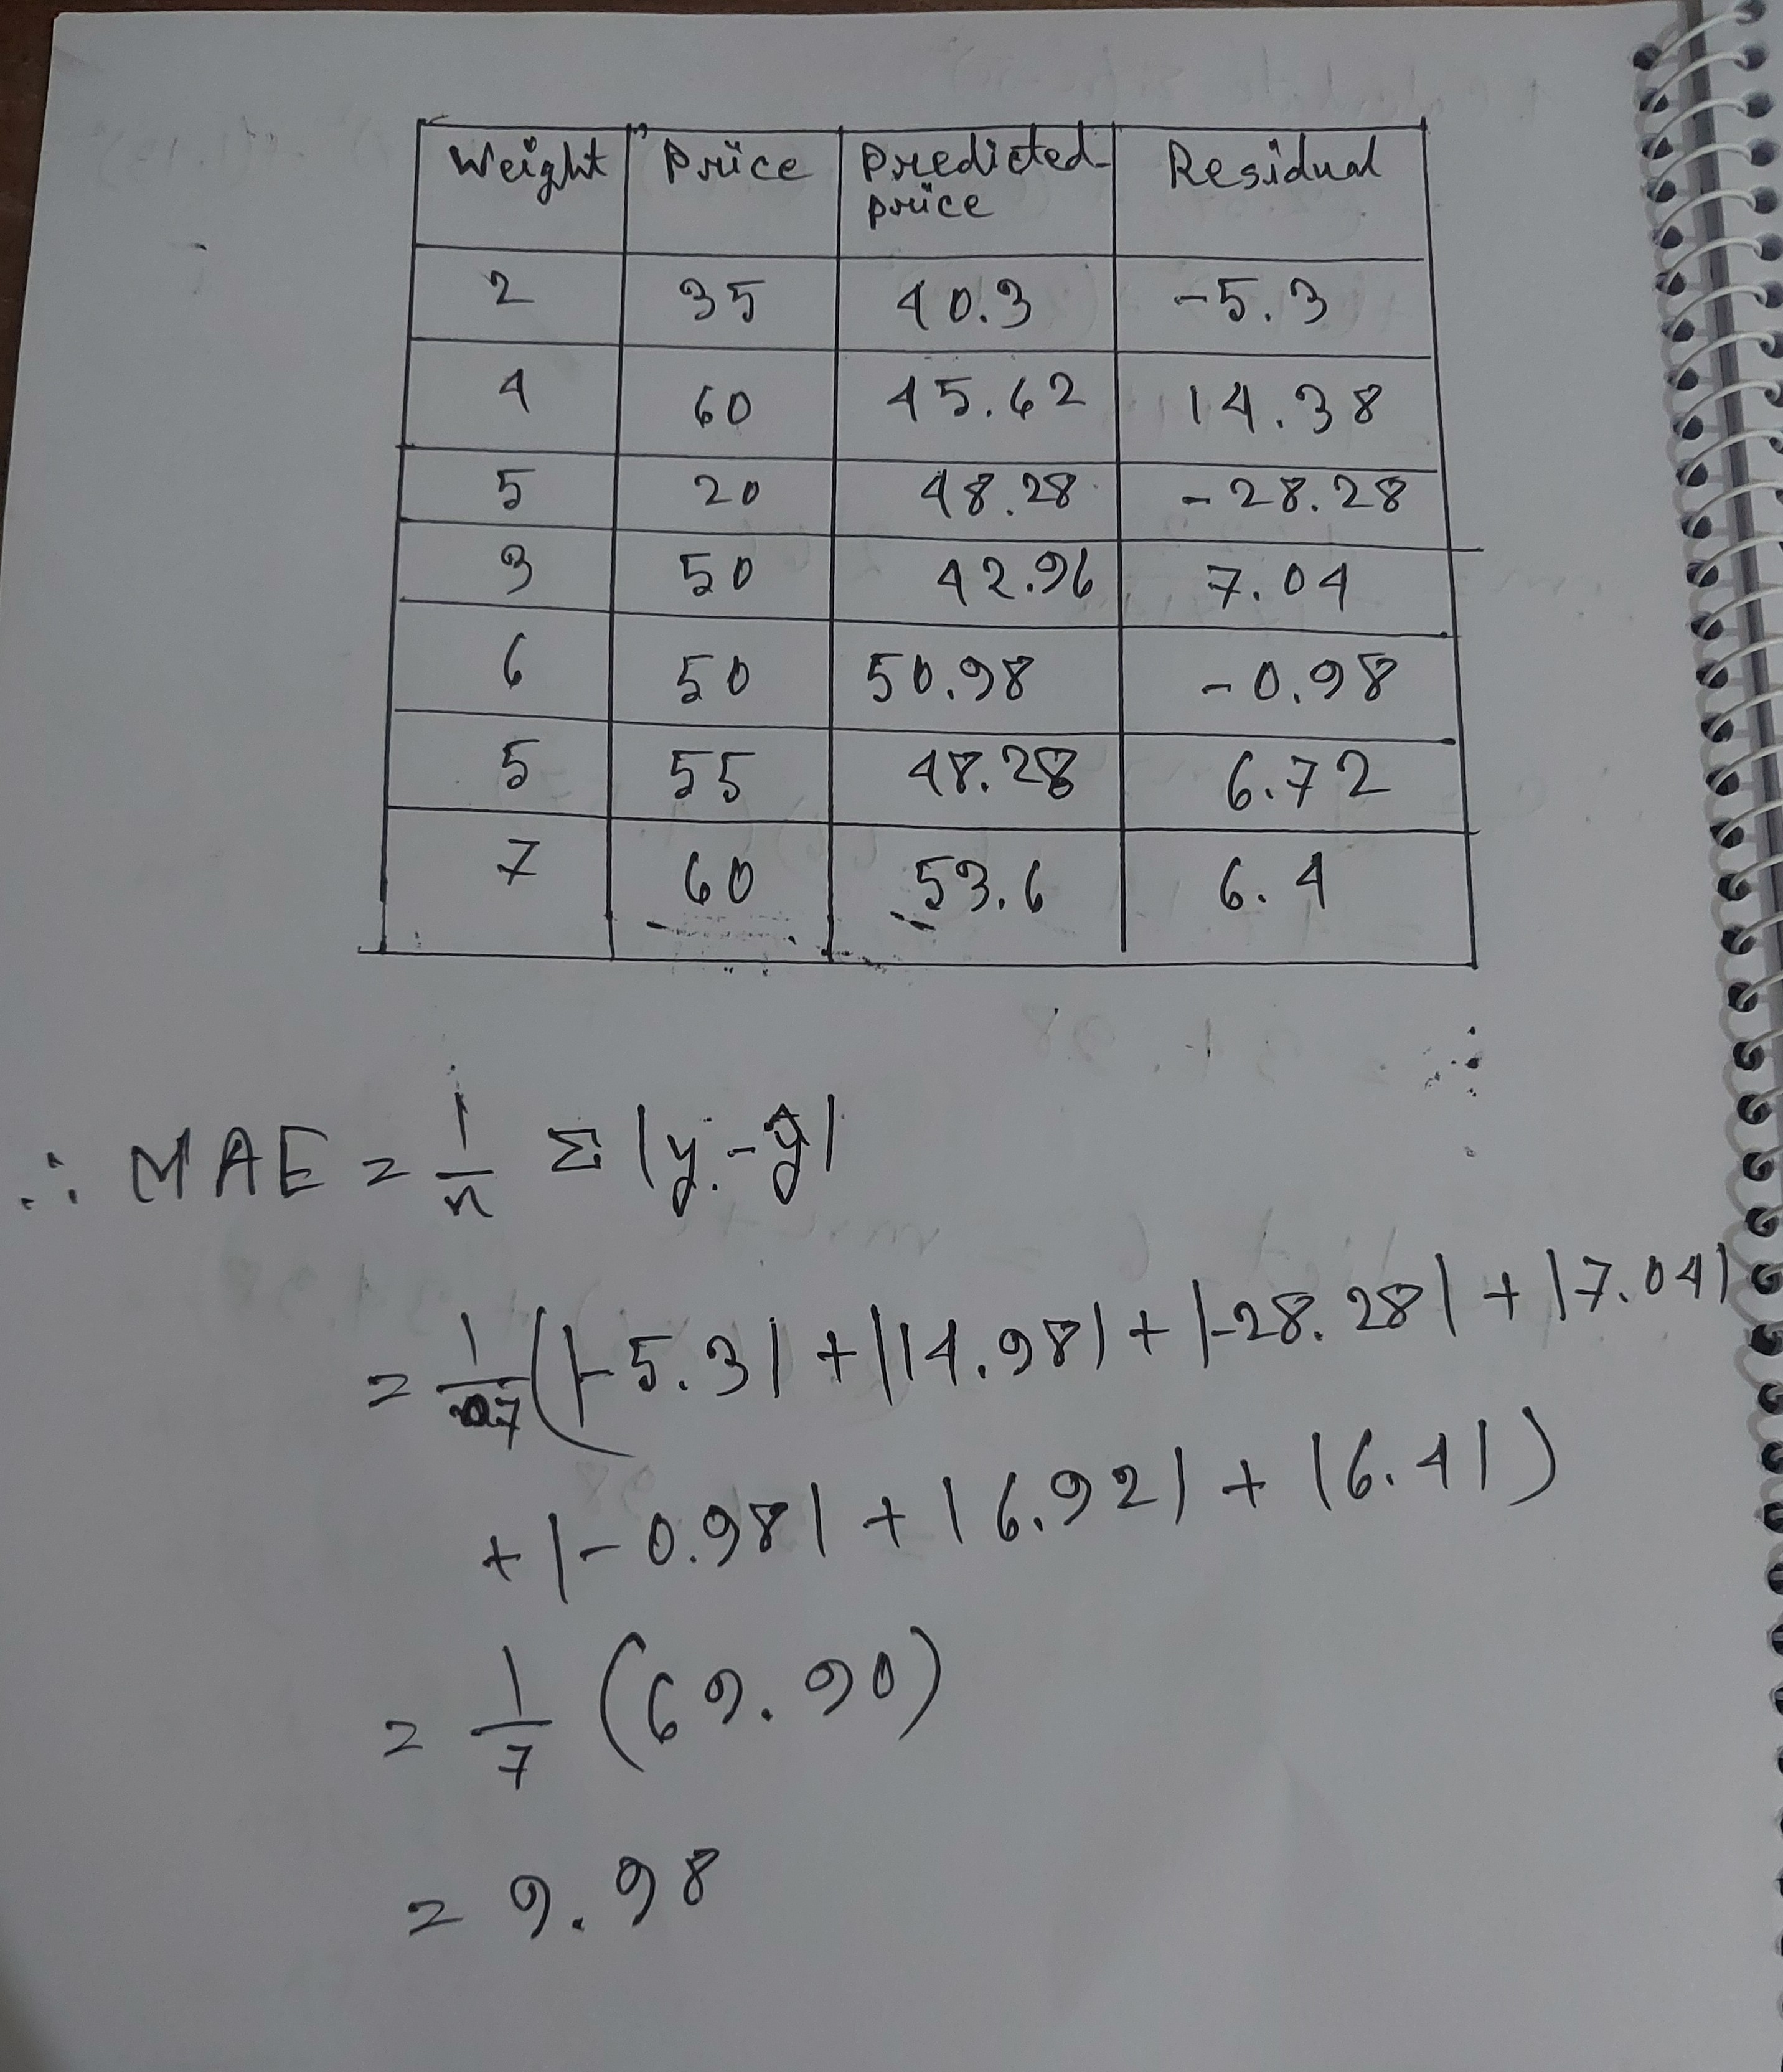 Weight Price Predicted price Residual
2 35 40.3 -5.3
4 60 45.62 14.38
5 20 48.28 -28.28
3 50 42.96 7.04
6 50 50.98 -0.98
5 55 48.28 6.72
7 60 53.6 6.4
∴ MAE = 1/n Σ |y - ŷ|
= 1/7 (|-5.3| + |14.98| + |-28.28| + |7.04|
+ |-0.98| + |6.92| + |6.4|)
= 1/7 (69.90)
= 9.98